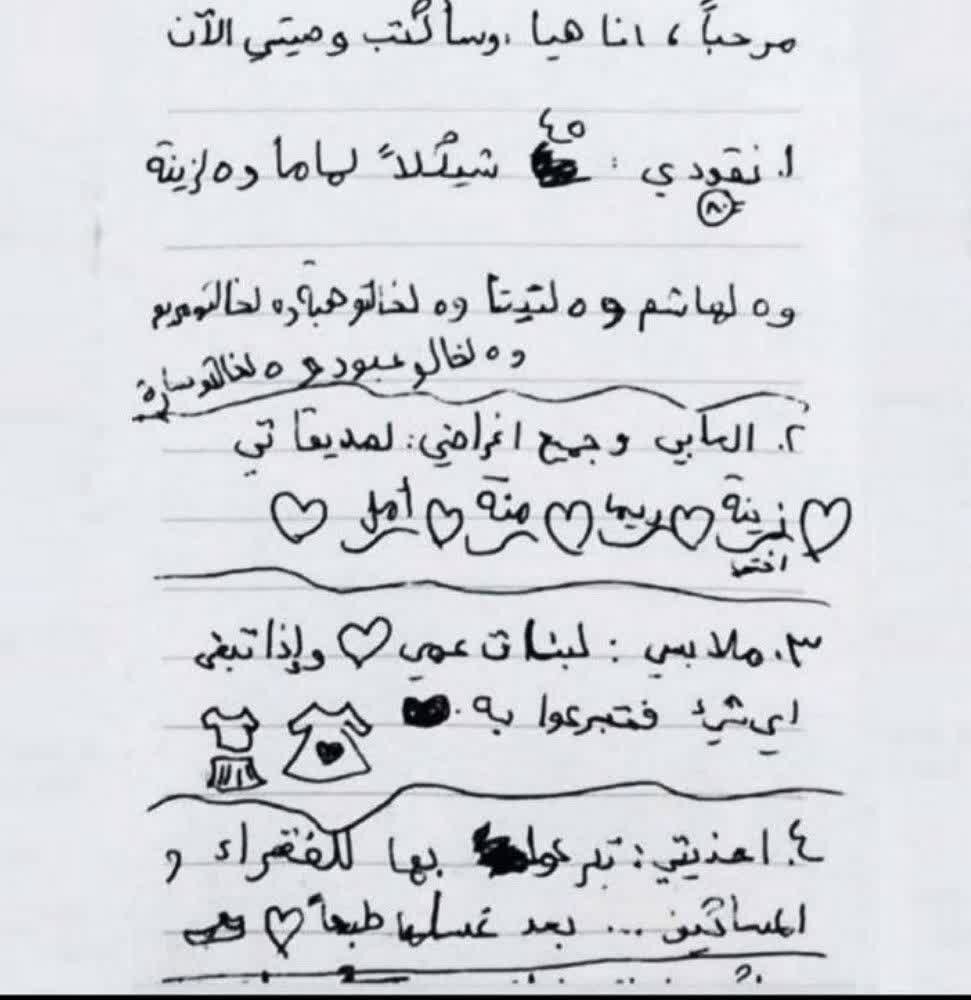 مرحباً ، انا هيا . وسأكتب وصيتي الآن
٤٥
١. نقودي : شيكلاً لماما و ٥ لزينة
٨٠
و ٥ لهاشم و ٥ لتيتا و ٥ لخالتو هبة و ٥ لخالتو مريم
و ٥ لخالو عبود و ٥ لخالتو سارة
٢. العابي وجميع اغراضي : لصديقاتي
زينة ريما منة أمل
اختي
٣. ملابسي : لبنات عمي وإذا تبقى
اي شيء فتبرعوا به .
٤. احذيتي : تبرعوا بها للفقراء و
المساكين ... بعد غسلها طبعاً